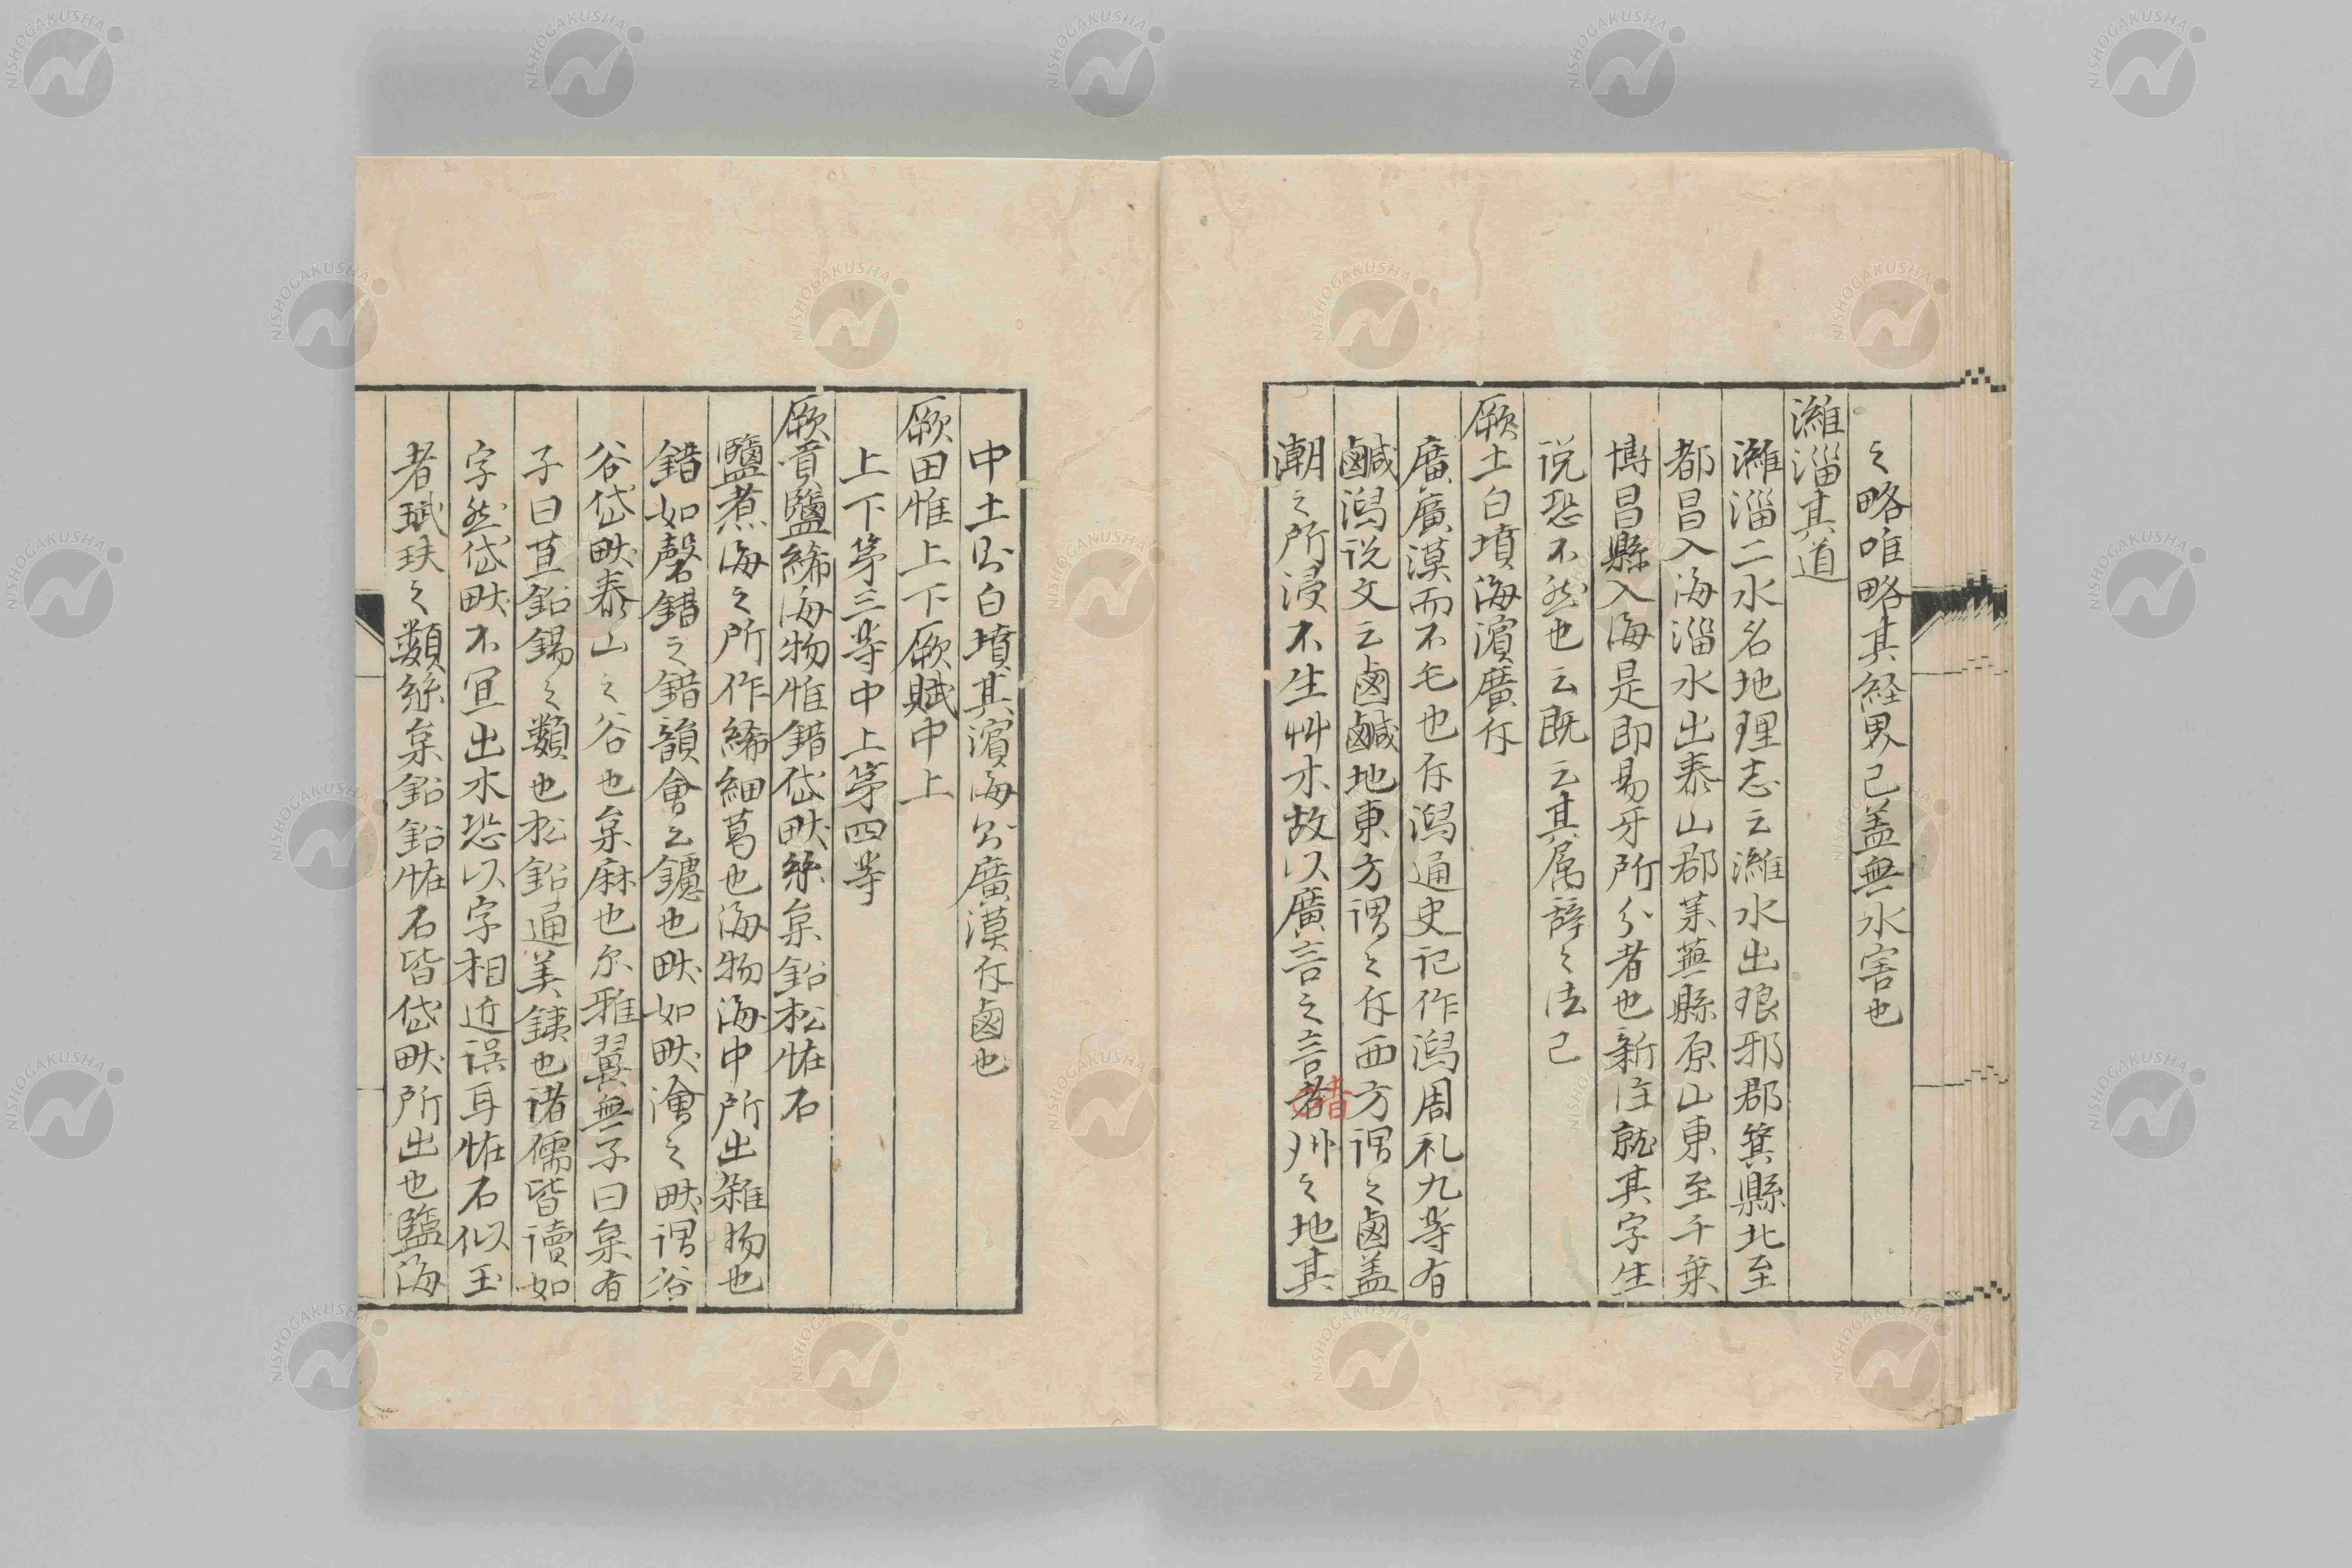 之略唯略其経界已盖無水害也
濰淄其道
濰淄二水名地理志云濰水出琅邪郡箕縣北至
都昌入海淄水出泰山郡莱蕪縣原山東至千乗
博昌縣入海是即易牙所分者也新注就其字生
説恐不然也云既云其属辞之法已
厥土白墳海濱廣斥
廣廣漠而不毛也斥潟通史記作潟周礼九等有
鹹潟説文云鹵鹹地東方謂之斥西方謂之鹵盖
潮之所浸不生艸木故以廣言之言青州之地其
中土公白墳其濱海公廣漠斥鹵也
厥田惟上下厥賦中上
上下第三等中上第四等
厥貢鹽絺海物惟錯岱畎絲枲鉛松怪石
鹽煮海之所作絺細葛也海物海中所出雑物也
錯如磬錯之錯韻會云鑢也畎如畎澮之畎謂谷
谷岱畎泰山之谷也枲麻也尓雅翼無子曰枲有
子曰苴鉛錫之類也松鉛通美銕也诸儒皆讀如
字然岱畎不宜出木恐以字相近誤耳怪石似玉
者珷玞之類絲枲鉛鉛怪石皆岱畎所出也鹽海
NISHOGAKUSHA